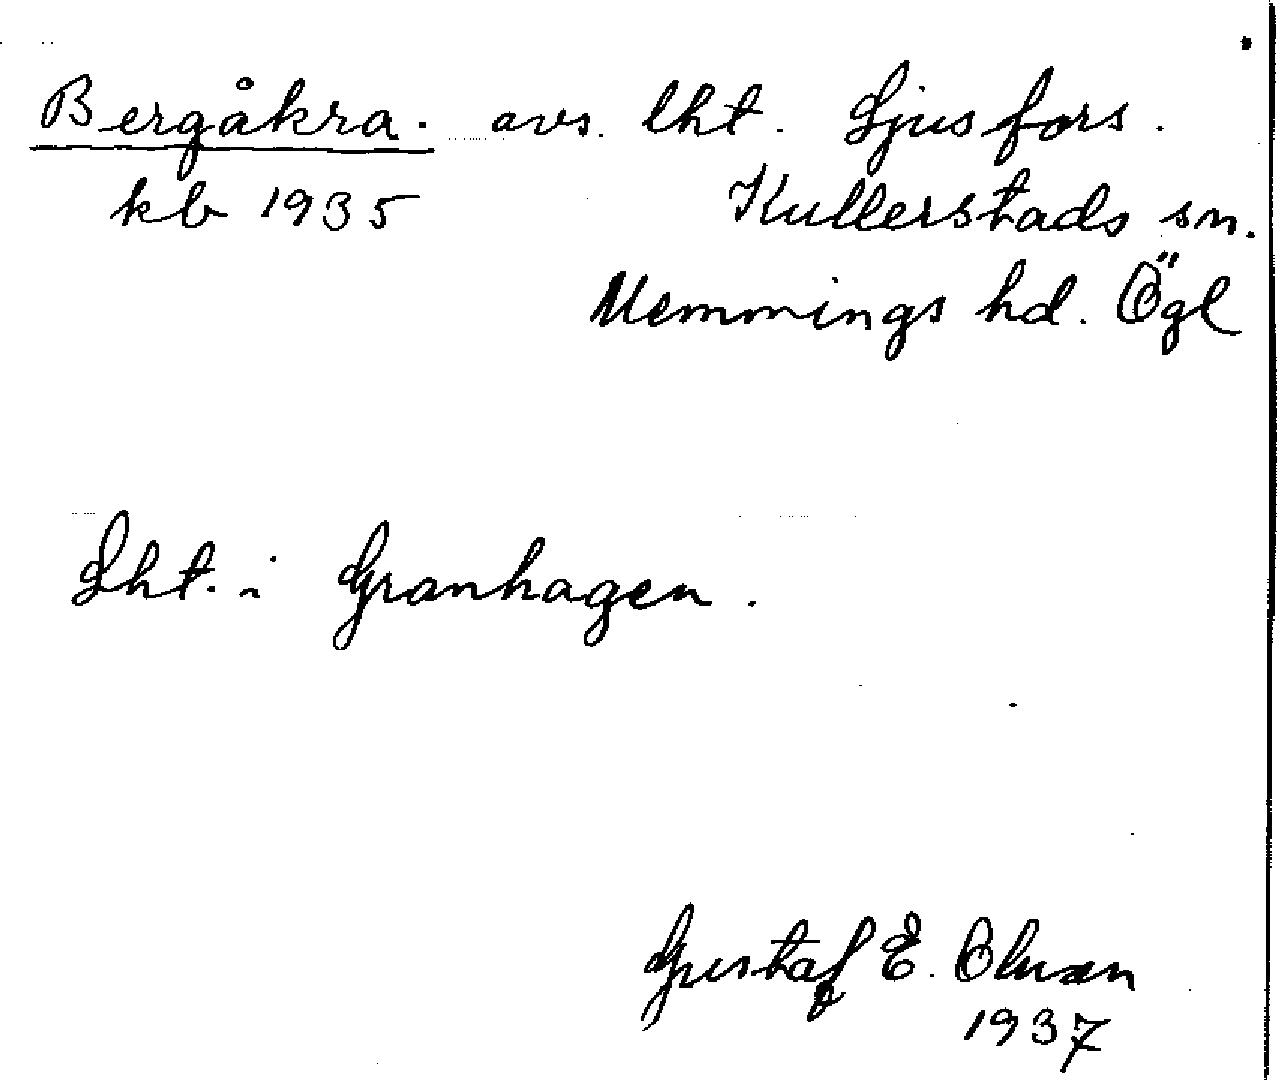 Bergåkra. avs. lht. Ljusfors.
kb 1935 Kullerstads sn.
Memmings hd. Ögl
Lht. i Granhagen.
Gustaf E.
1937